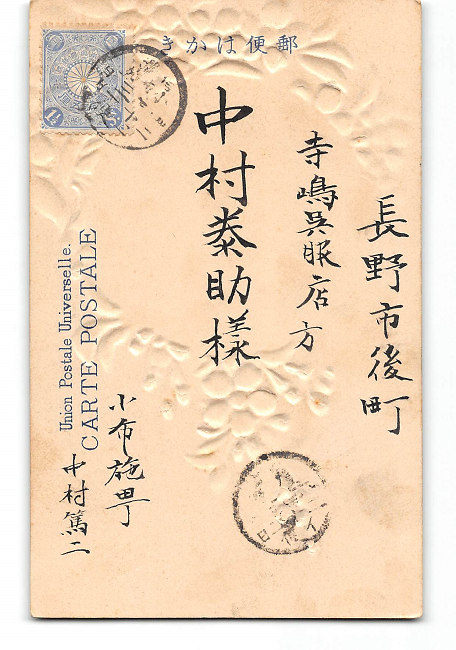 きかは便郵
長野市後町
寺嶋呉服店方
中村泰助様
小布施町
中村篤二
Union Postale Universelle.
CARTE POSTALE